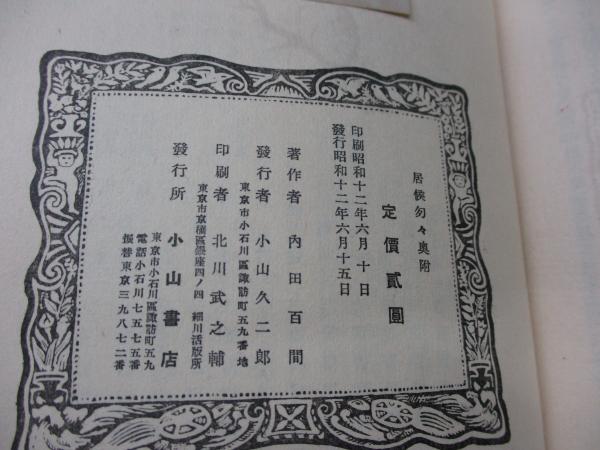 居候匆々奥附
定價貳圓
印刷昭和十二年六月十日
發行昭和十二年六月十五日
著作者 內田百間
發行者 小山久二郎
東京市小石川區諏訪町五九番地
印刷者 北川武之輔
東京市京橋區銀座四ノ四 細川活版所
發行所 小山書店
東京市小石川區諏訪町五九
電話小石川七五七五番
振替東京三九八七二番